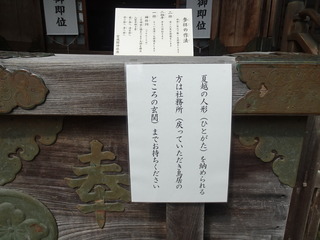 御即位
御即位
参拝の作法
夏越の人形（ひとがた）を納められる
方は社務所（戻っていただき鳥居の
ところの玄関）までお持ちください
奉